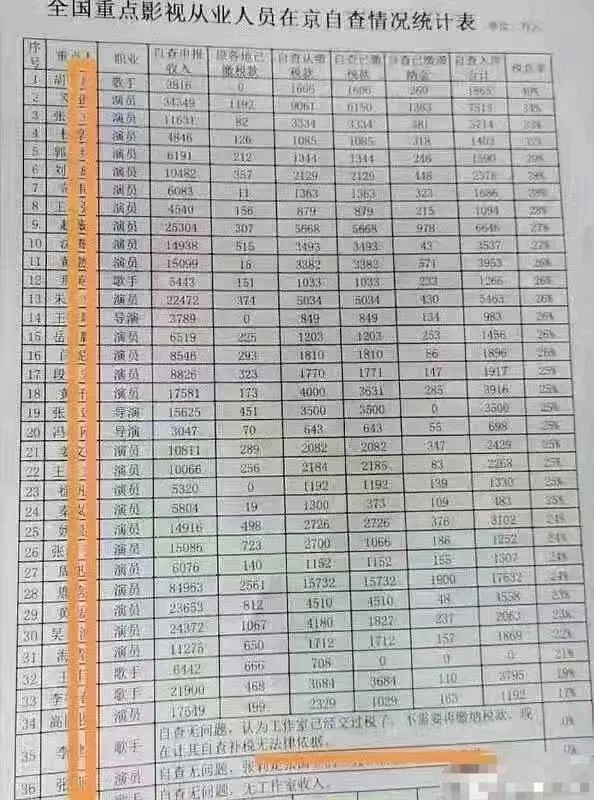 全国重点影视从业人员在京自查情况统计表 单位：万元
序号 重点人 职业 自查申报收入 原各地已缴税款 自查认缴税款 自查已缴税款 自查已缴滞纳金 自查入库合计 税负率
1 胡 歌手 3816 0 1606 1606 260 1865
2 演员 34349 1192 9061 6150 1363 7513 34%
3 张 演员 11631 82 3334 3334 381 3714 33%
4 杜 演员 4846 126 1085 1085 318 1403
5 郭 演员 6191 212 1344 1344 246 1590 29%
6 刘 演员 10482 357 2129 2129 448 28%
7 演员 6083 11 1363 1363 323 1686 28%
8 王 演员 4540 156 879 879 215 1094 28%
9 赵 演员 25304 307 5668 5668 978 6646 27%
10 演员 14938 515 3493 3493 43 3537 27%
11 黄 演员 15099 15 3382 3382 571 3953 26%
12 歌手 5443 151 1033 1033 233 1266 26%
13 朱 演员 22472 374 5034 5034 430 5463 26%
14 王 导演 3789 0 849 849 134 983 26%
15 岳 演员 6519 225 1203 1203 253 1456 26%
16 闫 演员 8546 293 1810 1810 86 1896 26%
17 段 演员 8826 323 1770 1771 147 1917 25%
18 黄 演员 17581 173 4000 3631 285 3916 25%
19 张 导演 15625 451 3500 3500 0 3500 25%
20 冯 导演 3047 70 643 643 55 698 25%
21 文 演员 10811 289 2082 2082 347 2429 25%
22 王 演员 10066 256 2184 2185 83 2268 25%
23 演员 5320 0 1192 1192 139 1330 25%
24 秦 演员 5804 19 1300 373 109 483 25%
25 演员 14916 498 2726 2726 376 3102 24%
26 张 演员 15086 723 2700 1066 186 1252 24%
27 周 演员 6076 140 1152 1152 155 1307 24%
28 演员 84963 2561 15732 15732 1900 17632 24%
29 黄 演员 23653 812 4510 4510 48 4558 23%
30 吴 演员 24372 1067 4180 1827 237 2063 23%
31 演员 11275 650 1712 1712 157 1869 22%
32 王 歌手 6442 666 708 0 0 0 21%
33 李 歌手 21900 468 3684 3684 110 3795 19%
34 高 演员 17549 499 2329 1029 163 1192 17%
35 李 歌手 自查无问题，认为工作室已经交过税了，不需要再缴纳税款，现在让其自查补税无法律依据。 0%
36 张 演员 自查无问题，无工作室收入。 0%